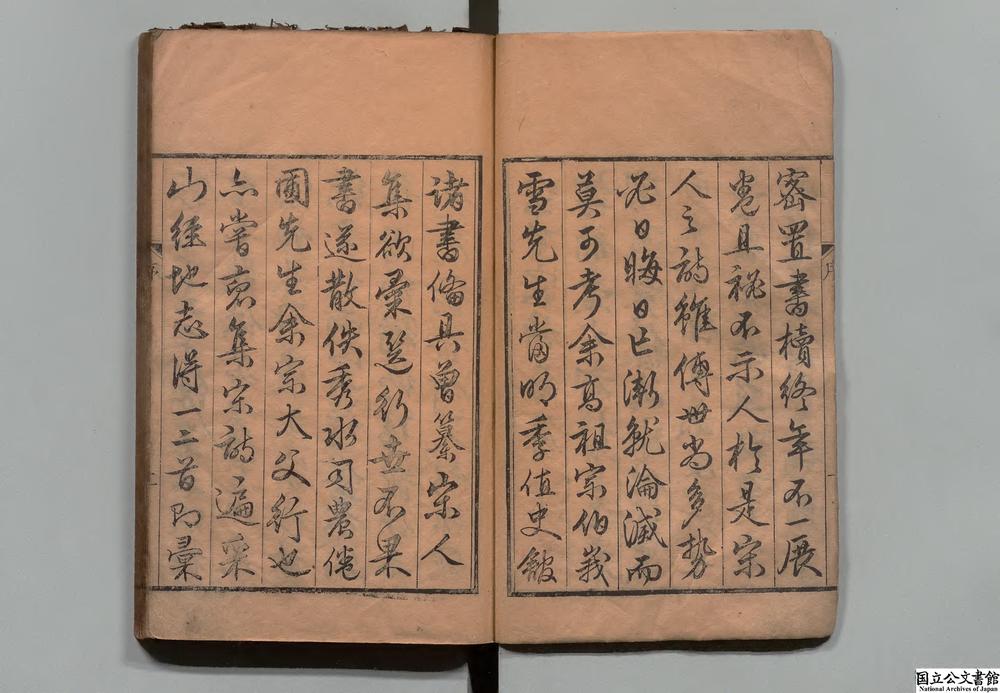 密置書櫝終年不一展
卷且祕不示人於是宋
人之詩雖傳世尚多勢
必日晦日亡漸就淪滅而
莫可考余高祖宗伯峩
雪先生當明季值史館
序
諸書俻具曾纂宋人
集欲彙選行世不果
書遂散佚秀水司農倦
圃先生余宗大父行也
亦嘗裒集宋詩遍采
山經地志得一二首即彙
国立公文書館
National Archives of Japan